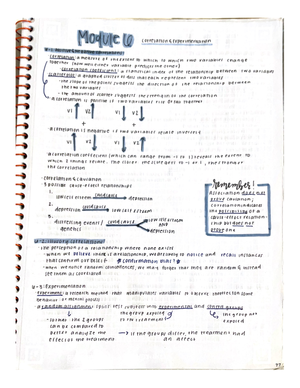 Module 6
Correlation & Experimentation
6-1: Positive & Negative Correlations
Correlation: a measure of the extent to which two variables change
together (how well either variable predicts the other)
correlation coefficient: a statistical index of the relationship between two variables
scatterplots: a graphed cluster of dots that each represent two variables
- the slope of the points suggests the direction of the relationship between
the two variables
- the amount of scatter suggests the strength of the correlation
a correlation is positive if two variables rise or fall together
V1 V2 V1 V2
a correlation is negative if two variables relate inversely
V1 V2 V1 V2
a correlation coefficient (which can range from -1 to 1) reveals the extent to
which 2 things relate. The closer the score gets to -1 or 1, the stronger
the correlation
Correlation & Causation
3 possible cause-effect relationships
1. low self esteem could cause depression
2. depression could cause low self esteem
3. distressing events / genetics could cause low self esteem and depression
remember!
Association does not
prove causation;
correlation indicates
the possibility of a
cause-effect relationship
but does not
prove one
6-2: Illusory Correlations
The perception of a relationship where none exists
when we believe there is a relationship, we are likely to notice and recall instances
that confirm our belief * confirmation bias *
when we notice random coincidences, we may forget that they are random & instead
see them as correlated
6-3: Experimentation
Experiment: a research method that manipulates variables to observe their effect on some
behavior or mental process
random assignment
experimental and control groups
the group exposed
to the treatment
the group not
exposed
if the groups differ, the treatment had
an effect